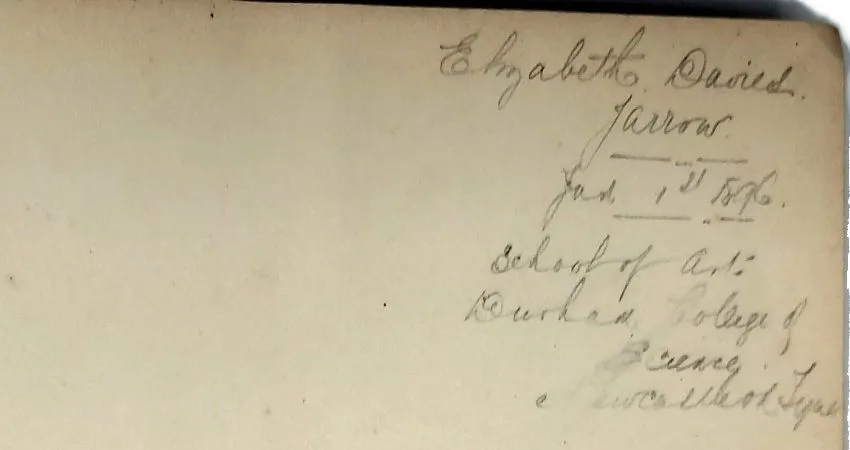 Elizabeth Davies.
Jarrow.
Jan 1st 1896.
School of Art:
Durham College of
Science
Newcastle on Tyne